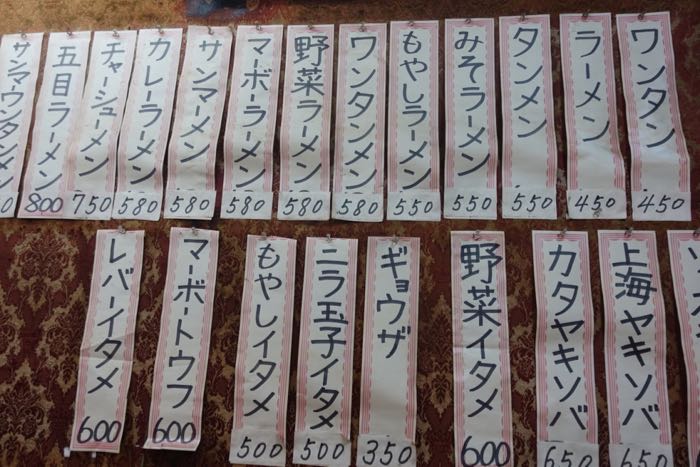 ワンタン 450
ラーメン 450
タンメン 550
みそラーメン 550
もやしラーメン 550
ワンタンメン 580
野菜ラーメン 580
マーボーラーメン 580
サンマーメン 580
カレーラーメン 580
チャーシューメン 750
五目ラーメン 800
サンマウンタンメン
上海ヤキソバ 650
カタヤキソバ 650
野菜イタメ 600
ギョウザ 350
ニラ玉子イタメ 500
もやしイタメ 500
マーボートウフ 600
レバーイタメ 600